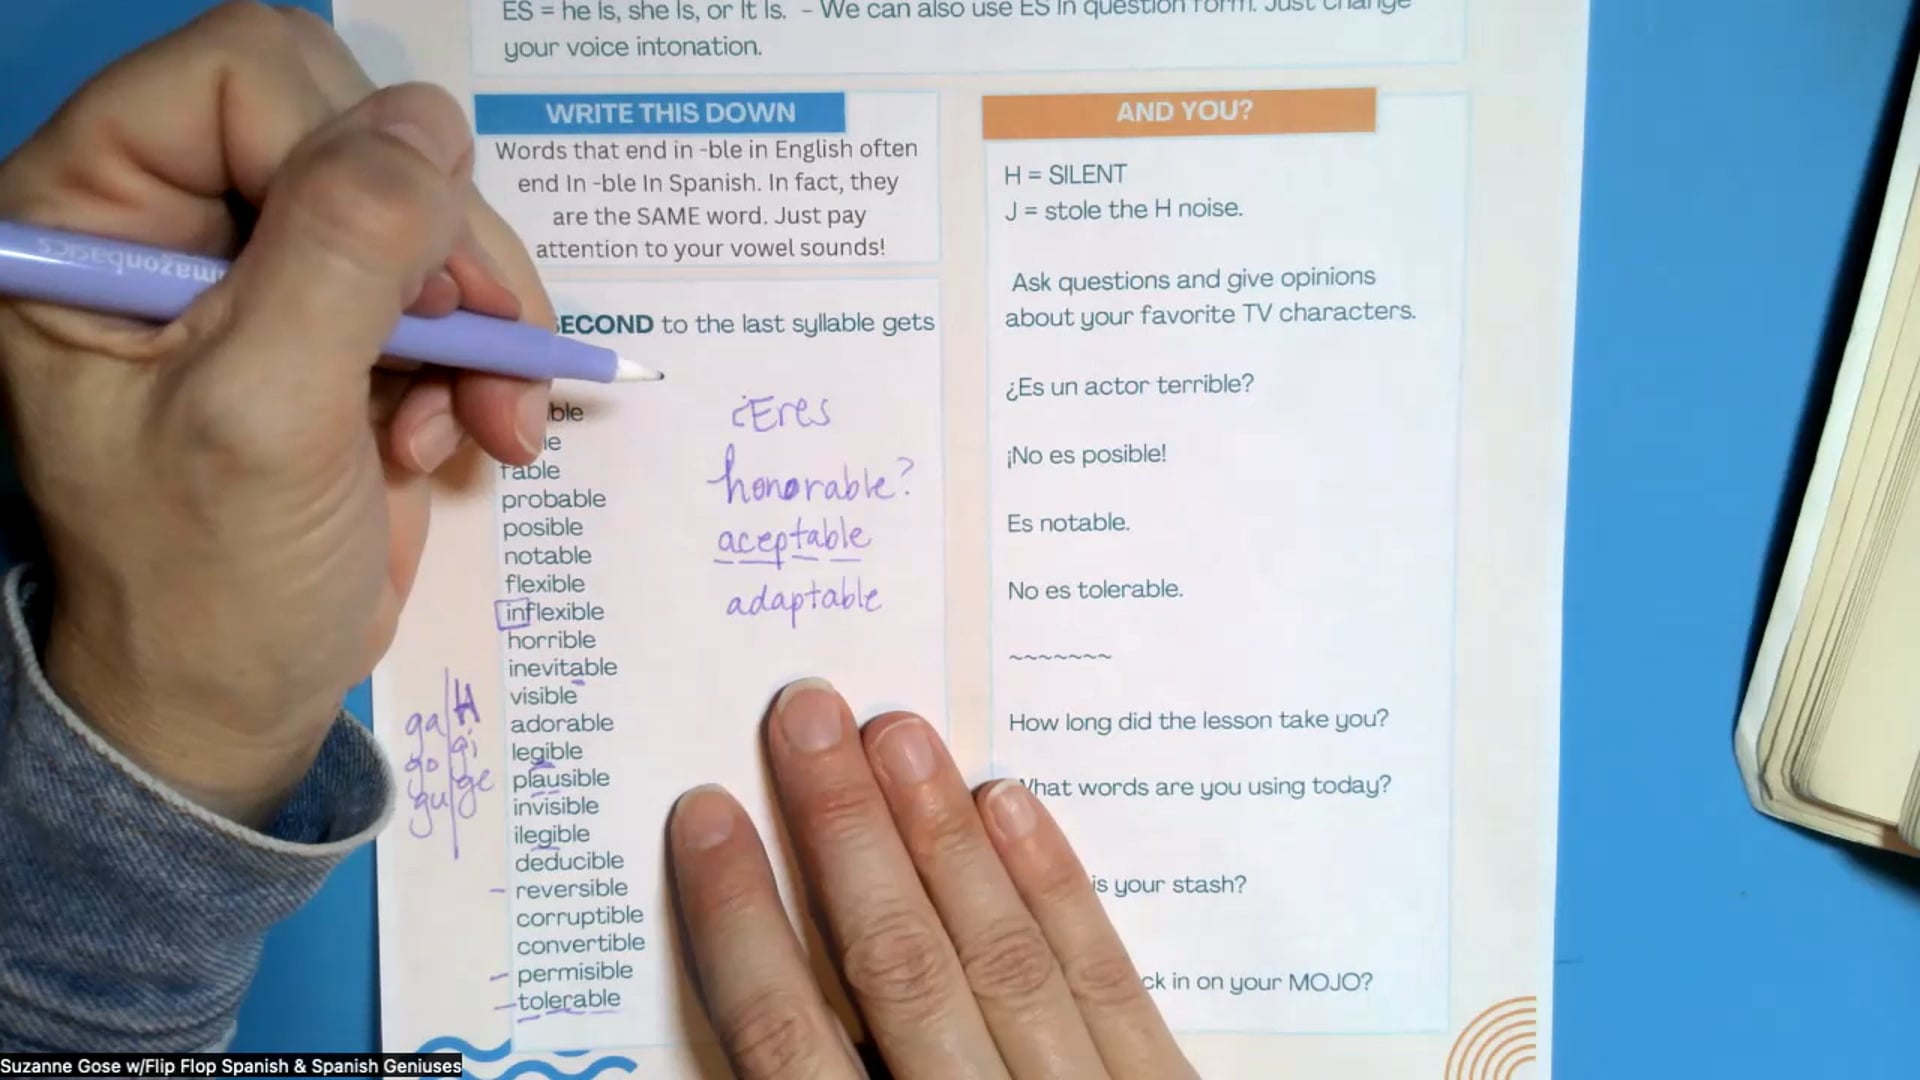 ES = he is, she is, or it is. – We can also use ES in question form. Just change
your voice intonation.
WRITE THIS DOWN
Words that end in -ble in English often
end In -ble In Spanish. In fact, they
are the SAME word. Just pay
attention to your vowel sounds!
SECOND to the last syllable gets
ble
le
table
probable
posible
notable
flexible
inflexible
horrible
inevitable
visible
adorable
legible
plausible
invisible
ilegible
deducible
reversible
corruptible
convertible
permisible
tolerable
H
ga gi
go ge
gu
¿Eres
honorable?
aceptable
adaptable
AND YOU?
H = SILENT
J = stole the H noise.
Ask questions and give opinions
about your favorite TV characters.
¿Es un actor terrible?
¡No es posible!
Es notable.
No es tolerable.
~~~~~~~
How long did the lesson take you?
What words are you using today?
is your stash?
ck in on your MOJO?
amazonbasics
Suzanne Gose w/Flip Flop Spanish & Spanish Geniuses